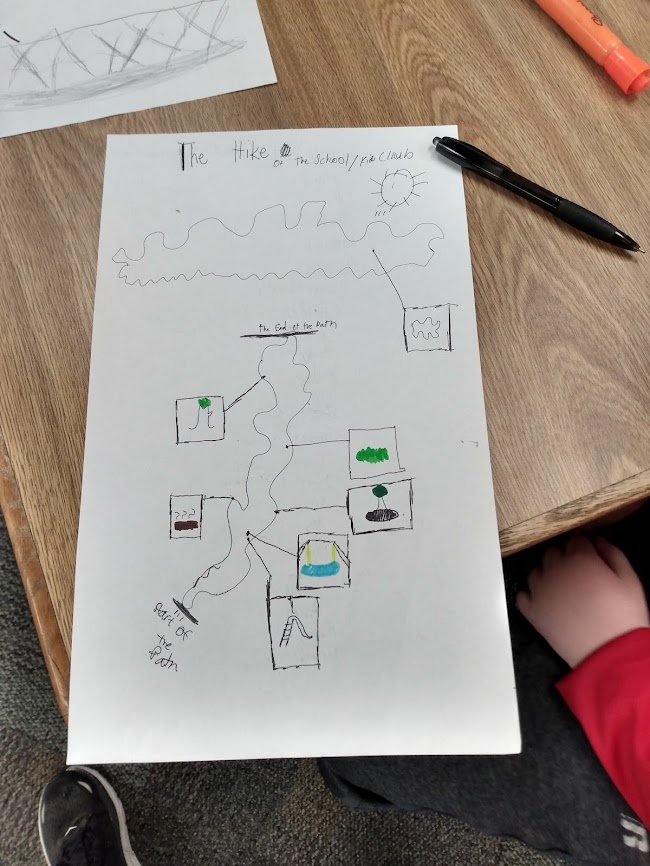 The Hike Of The School / Kids Climb
The End of the Path
???
Start Of
the
Path